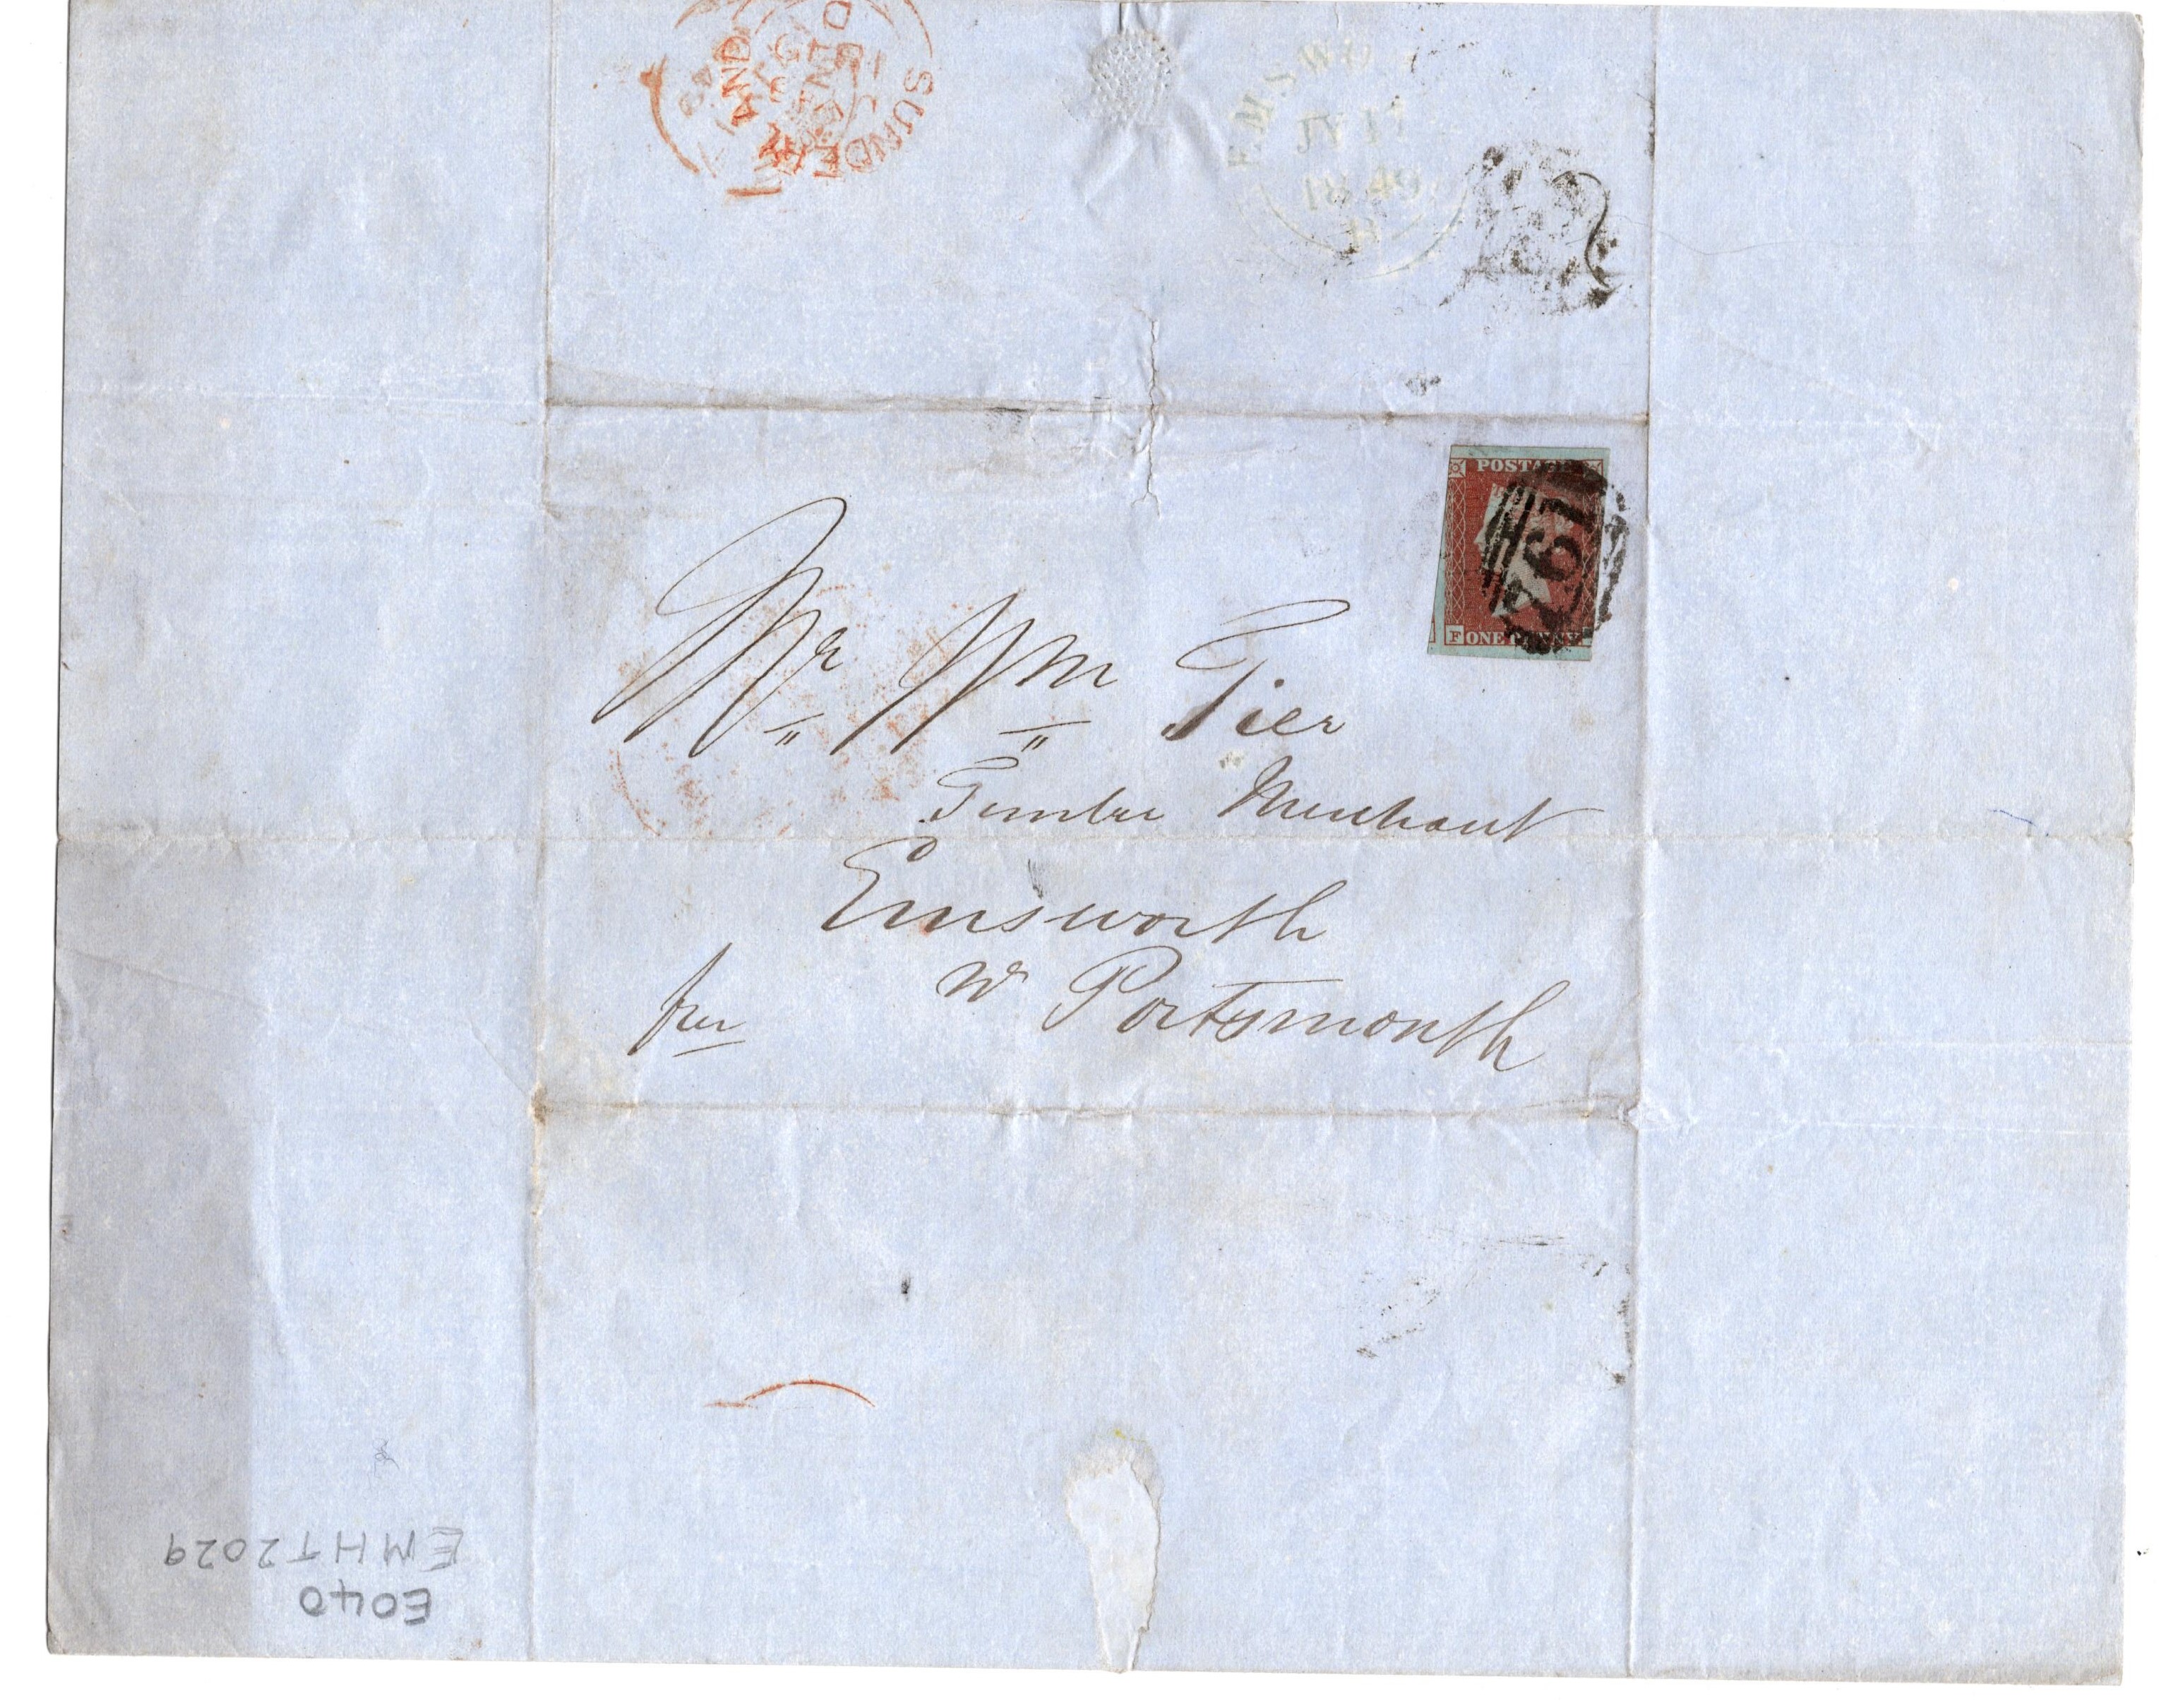 SUNDERLAND
EMSWO
JY 17
1849
POSTAGE
761
F ONE PENNY
Mr Wm Tier
Timber Merchant
Emsworth
Nr Portsmouth
free
EMHT2029
E040